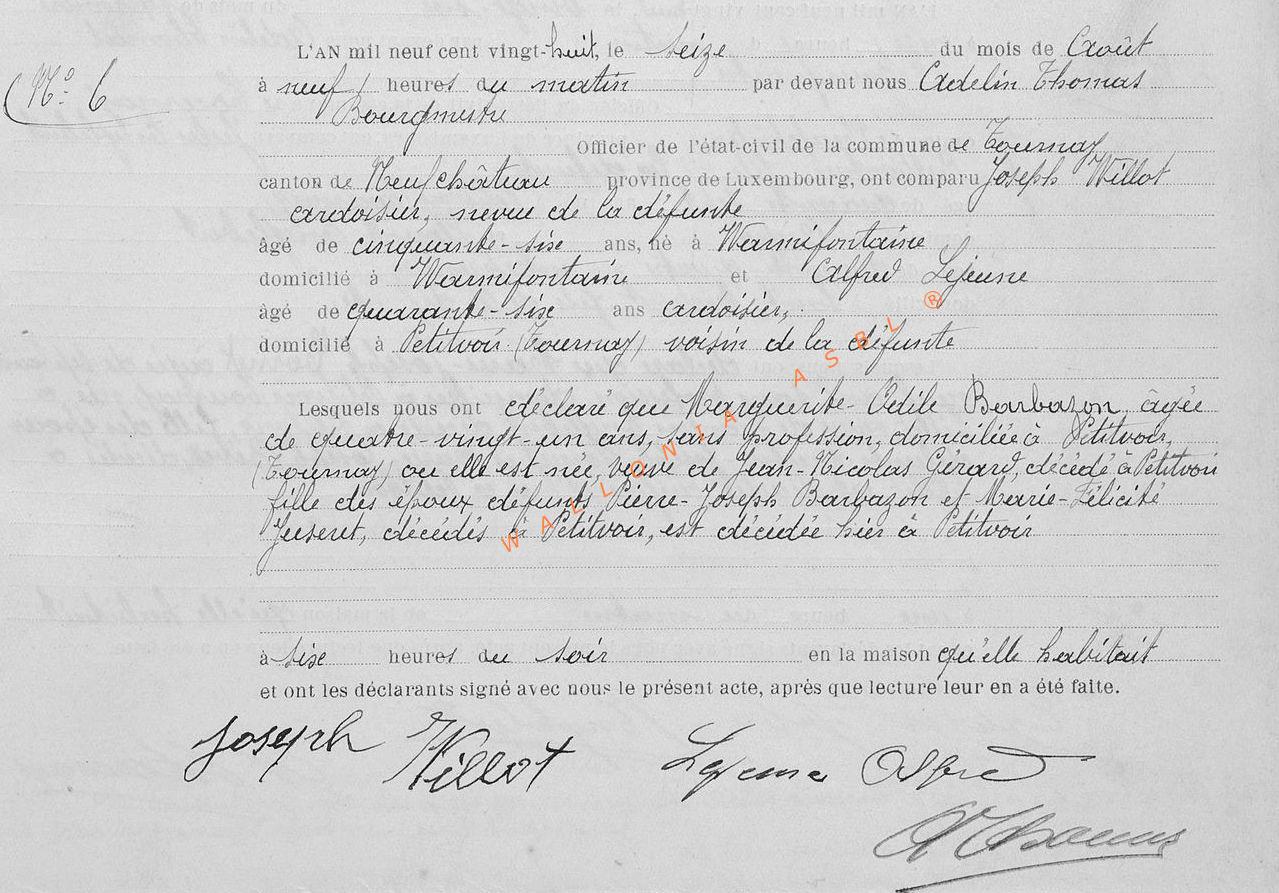 L'AN mil neuf cent vingt-huit, le seize du mois de Août
N° 6
à neuf heures du matin par devant nous Adelin Thomas
Bourgmestre
Officier de l'état-civil de la commune de Tournay
canton de Neufchâteau province de Luxembourg, ont comparu Joseph Willot
ardoisier, neveu de la défunte
âgé de cinquante-six ans, né à Warmifontaine
domicilié à Warmifontaine et Alfred Lejeune
âgé de quarante-six ans ardoisier,
domicilié à Petitvoir (Tournay) voisin de la défunte
Lesquels nous ont déclaré que Marguerite-Odile Barbazon, âgée
de quatre-vingt-un ans, sans profession, domiciliée à Petitvoir,
(Tournay) où elle est née, veuve de Jean-Nicolas Gérard, décédé à Petitvoir
fille des époux défunts Pierre-Joseph Barbazon et Marie-Félicité
Juseret, décédés à Petitvoir, est décédée hier à Petitvoir
à six heures du soir en la maison qu'elle habitait
et ont les déclarants signé avec nous le présent acte, après que lecture leur en a été faite.
Joseph Willot Lejeune Alfred
A Thomas
WALLONIA ASBL ®